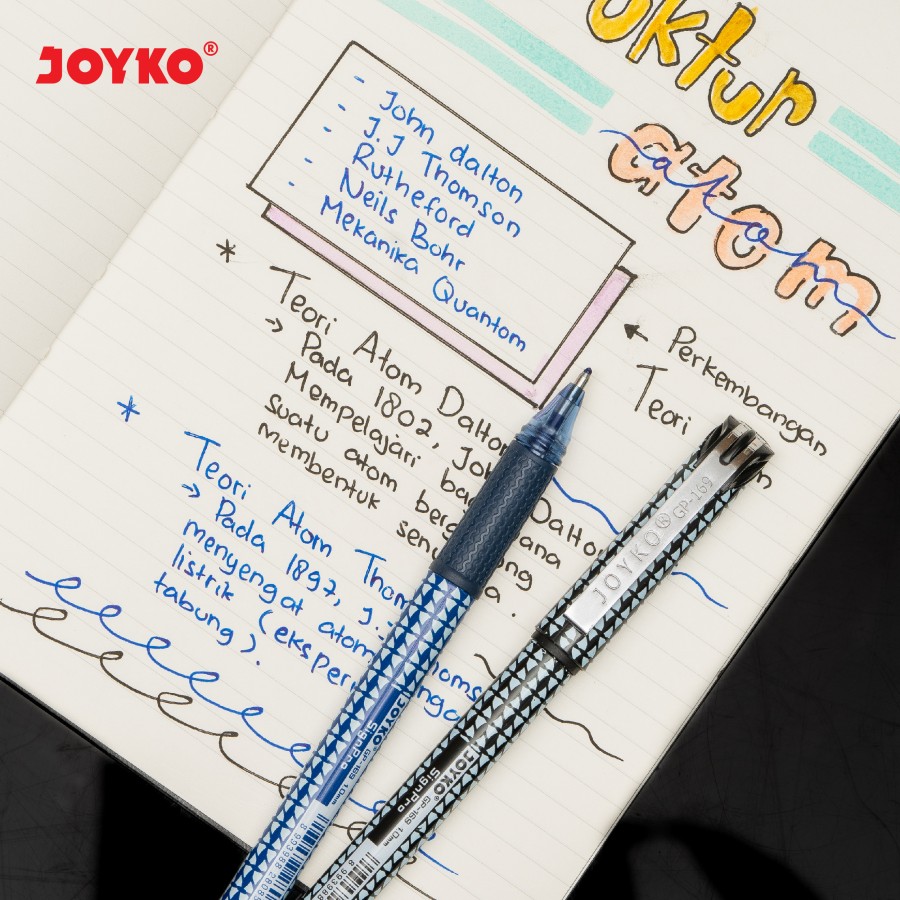 JOYKO®
oktur
atom
- John dalton
- J.J Thomson
- Rutheford
- Neils Bohr
- Mekanika Quantom
← Perkembangan
Teori
* Teori Atom Dalton
→ Pada 1802, Joh Dalto
Mempelajari ba ana
suatu atom berg ng
membentuk seny a.
* Teori Atom Thom
→ Pada 1897, J. oms
menyengat atom nga
listrik (eksperi
tabung).
JOYKO® GP-169
JOYKO
SignPro
GP-169 1.0mm
8 993988 28085
JOYKO®
SignPro
GP-169 1.0mm
8 993988